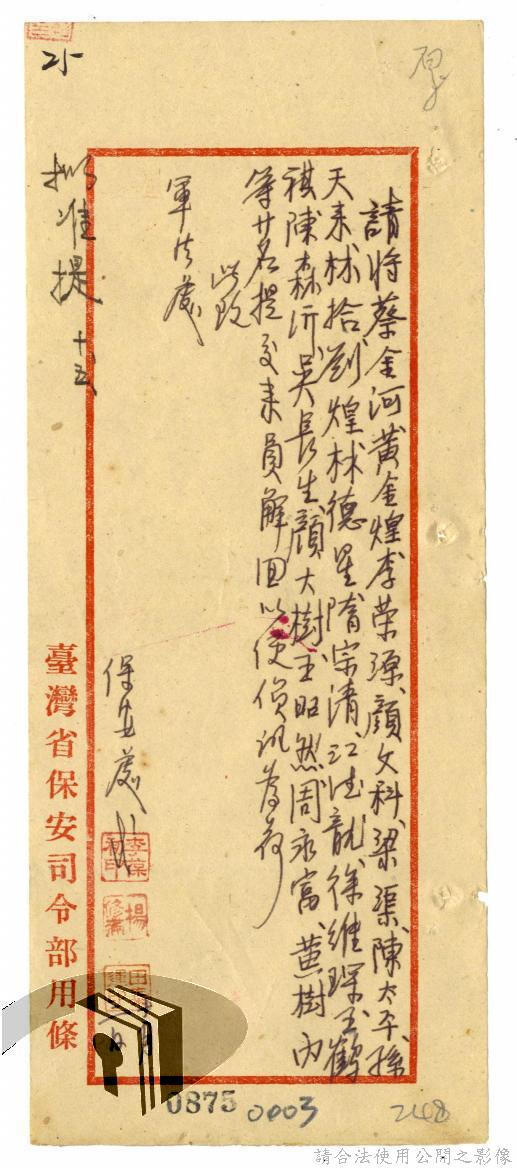 25
請將蔡金河黃金煌李荣源顏文科梁渠陳太平孫
天来林拾劉煌林德星隋宗清江德龍徐維琛王鶴
祺陳森沂吳長生顏大樹王昭然周永富黃樹內
等廿名提交来員解回以便偵訊為荷
此致
軍法處
保安處
擬准提
十五
臺灣省保安司令部用條
0875
0003
248
請合法使用公開之影像